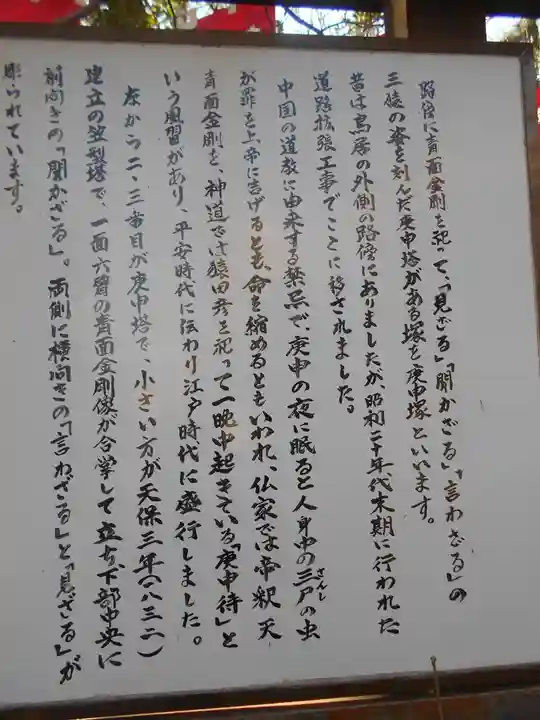 路傍に青面金剛を祀って、「見ざる」「聞かざる」「言わざる」の
三猿の姿を刻んだ庚申塔がある塚を庚申塚といいます。
昔は鳥居の外側の路傍にありましたが、昭和二十年代末期に行われた
道路拡張工事でここに移されました。
中国の道教に由来する禁忌で、庚申の夜に眠ると人身中の三尸の虫
さんし
が罪を上帝に告げるとも、命を縮めるともいわれ、仏家では帝釈天
青面金剛を、神道では猿田彦を祀って一晩中起きている「庚申待」と
いう風習があり、平安時代に伝わり江戸時代に盛行しました。
左から二、三番目が庚申塔で、小さい方が天保三年(一八三二)
建立の笠型塔で、一面六臂の青面金剛像が合掌して立ち、下部中央に
前向きの「聞かざる」。両側に横向きの「言わざる」と「見ざる」が
彫られています。